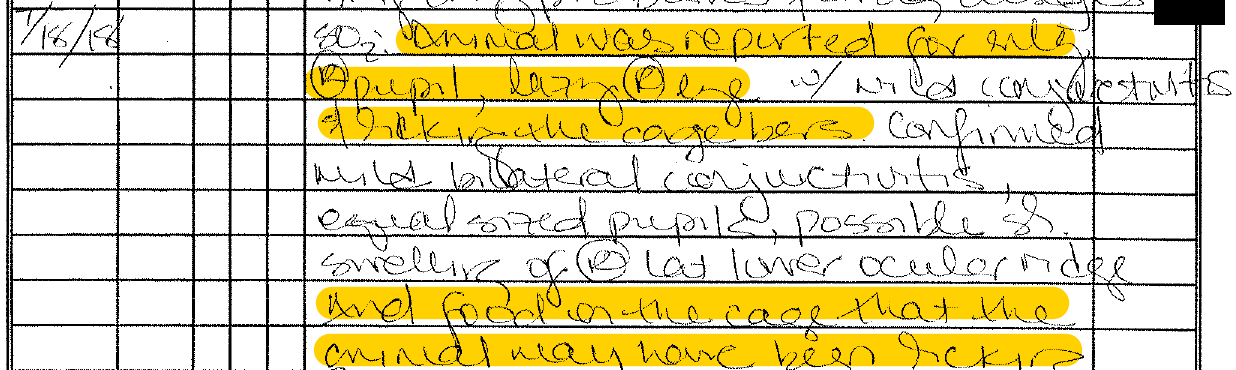 7/18/18 SO2: Animal was reported for
Ⓡ pupil, lazy Ⓡ eye w/ mild conjestivitis
& licking the cage bars. Confirmed
mild bilateral conjuctivitis,
equal sized pupils, possible sl.
swelling of Ⓡ lat lower ocular ridge
and food on the cage that the
animal may have been licking